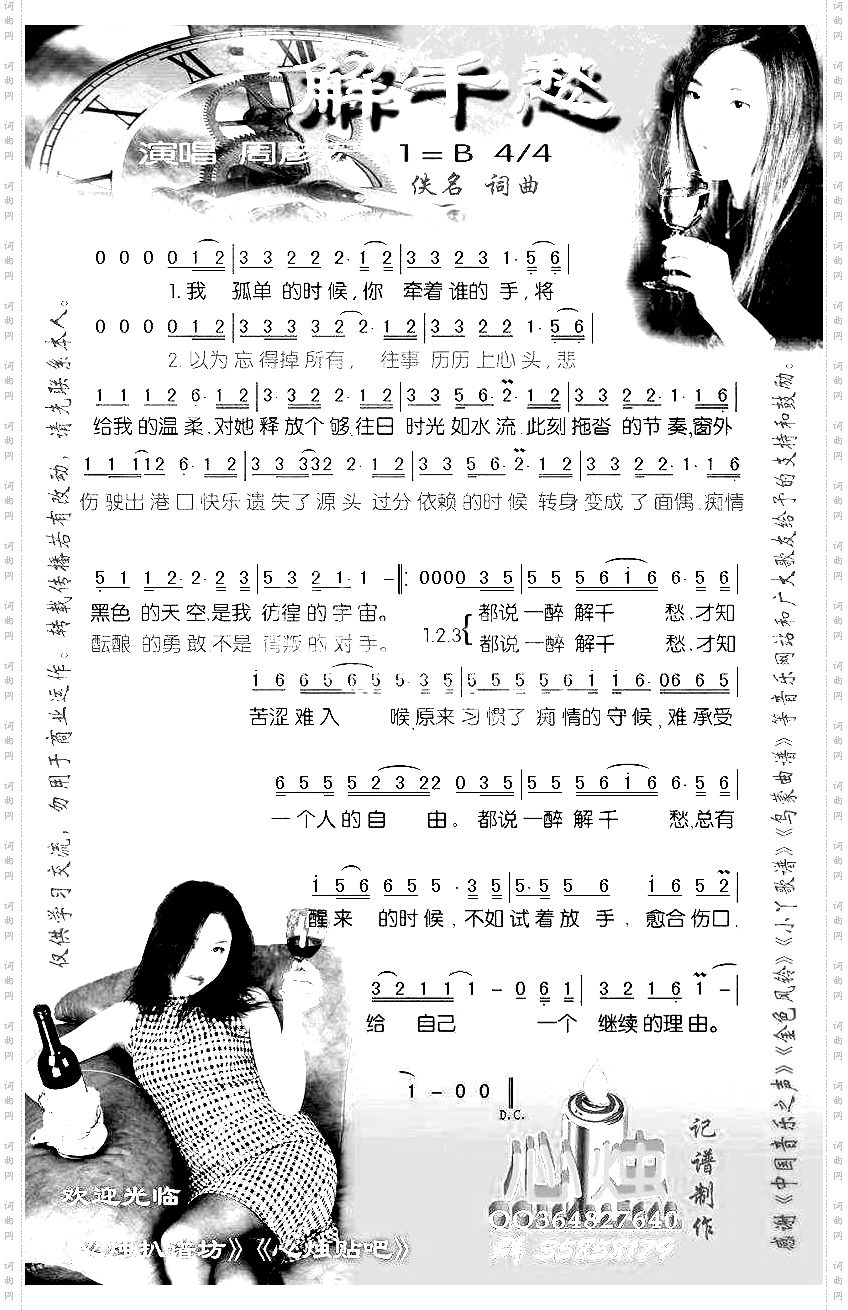 解千愁
演唱 周彦宏 1=B 4/4
佚名 词曲
0 0 0 0 1 2 | 3 3 2 2 2· 1 2 | 3 3 2 3 1· 5 6 |
1.我 孤单 的时候,你 牵着谁的 手,将
0 0 0 0 1 2 | 3 3 3 3 2 2· 1 2 | 3 3 2 2 1· 5 6 |
2.以为 忘得掉所有, 往事 历历上心头,悲
1 1 1 2 6· 1 2 | 3· 3 2 2· 1 2 | 3 3 5 6· 2· 1 2 | 3 3 2 2· 1· 1 6 |
给我的温柔,对她释放个够,往日 时光如水流.此刻拖沓 的节奏,窗外
1 1 1 1 1 2 6· 1 2 | 3 3 3 3 3 2 2· 1 2 | 3· 3 5 6· 2· 1 2 | 3 3 2 2 1· 1 6 |
伤驶出港口,快乐遗失了源头 过分依赖的时候 转身变成了面偶,痴情
5 1 1 2· 2· 2 3 | 5 3 2 1· 1 - ‖: 0 0 0 0 3 5 | 5 5 5 6 1 6 6· 5 6 |
黑色 的天空,是我 彷徨的宇宙。 都说一醉解千 愁,才知
酝酿 的勇敢,不是 背叛的对手。 1.2.3{ 都说一醉解千 愁,才知
1 6 6 5 6 5 5· 3 5 | 5 5 5 5 6 1 1· 6· 0 6 6 5 |
苦涩难入 喉,原来习惯了 痴情的守候,难承受
6 5 5 5 2 3 2 2 2 0 3 5 | 5 5 5 6 1 6 6· 5 6 |
一个人的自 由。都说一醉解千 愁,总有
1 5 6 6 5 5 · 3 5 | 5· 5 5 6 1 6 5 2 |
醒来 的时候,不如试着放手,愈合伤口.
3 2 1 1 1 1 - 0 6 1 | 3 2 1 6 1 - |
给 自己 一个 继续的理由。
1 - 0 0 ‖
D.C.
仅供学习交流,勿用于商业运作。转载传播若有改动,请先联系本人。
感谢《中国音乐之声》《金色风铃》《小丫歌谱》《乌蒙曲谱》等音乐网站和广大歌友给予的支持和鼓励。
欢迎光临
烛扒谱坊》《心烛贴吧》
心烛
QQ364827640
记谱制作
词曲网